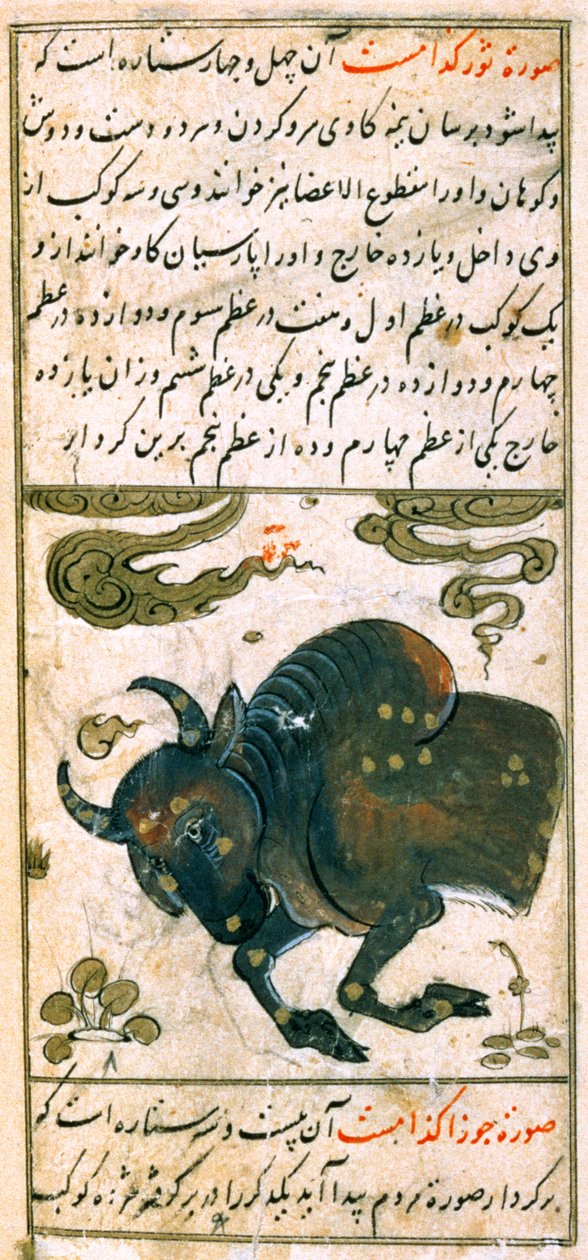 صورة ثور كذا مست آن چهل و چهار ستاره است كه
پيدا شود برسان نيمه كاوى سر و كردن و سر دو دست و دوش
و كوهان و او را مقطوع الاعضا نيز خوانند و سى و سه كوكب از
وى داخل و يازده خارج و او را پارسيان كاو خوانند از و
يك كوكب در عظم اول و هفت در عظم سوم و دوازده در عظم
چهارم و دوازده در عظم پنجم و يكى در عظم ششم وزان يازده
خارج يكى از عظم چهارم و ده از عظم پنجم برين كردار
صورة جوزا كذا مست آن بيست و سه ستاره است كه
بركردار صورة مردم پيدا آيد يكديكر را در بر كرفته كوكب